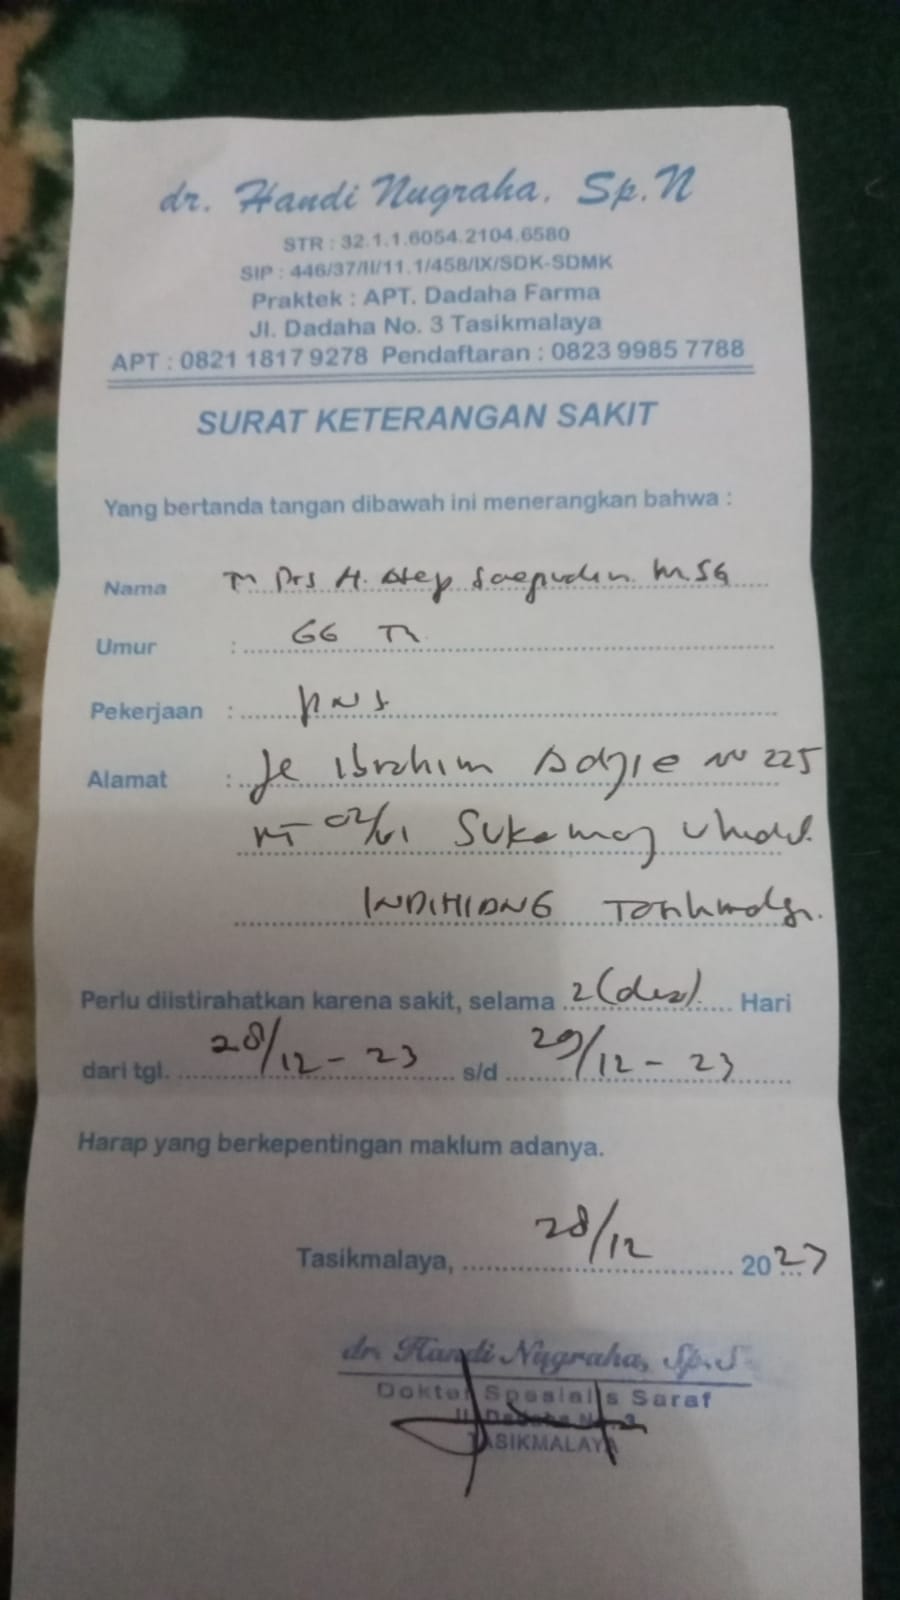 dr. Handi Nugraha, Sp.N
STR : 32.1.1.6054.2104.6580
SIP : 446/37/II/11.1/458/IX/SDK-SDMK
Praktek : APT. Dadaha Farma
Jl. Dadaha No. 3 Tasikmalaya
APT : 0821 1817 9278 Pendaftaran : 0823 9985 7788
SURAT KETERANGAN SAKIT
Yang bertanda tangan dibawah ini menerangkan bahwa :
Nama Tn Drs H. Saepudin M.SG
Umur : 66 Th
Pekerjaan : PNS
Alamat : Jl Ibrahim Adjie No 225
RT 02/01
INDIHIANG
Perlu diistirahatkan karena sakit, selama 2 (dua) Hari
dari tgl. 28/12 - 23 s/d 29/12 - 23
Harap yang berkepentingan maklum adanya.
Tasikmalaya, 28/12 2023
dr. Handi Nugraha, Sp.S
Dokter Spesialis Saraf
Jl. Dadaha No. 3
TASIKMALAYA